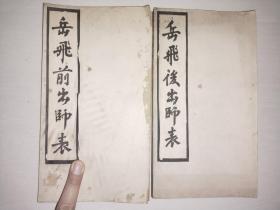 岳飛前出師表
岳飛後出師表